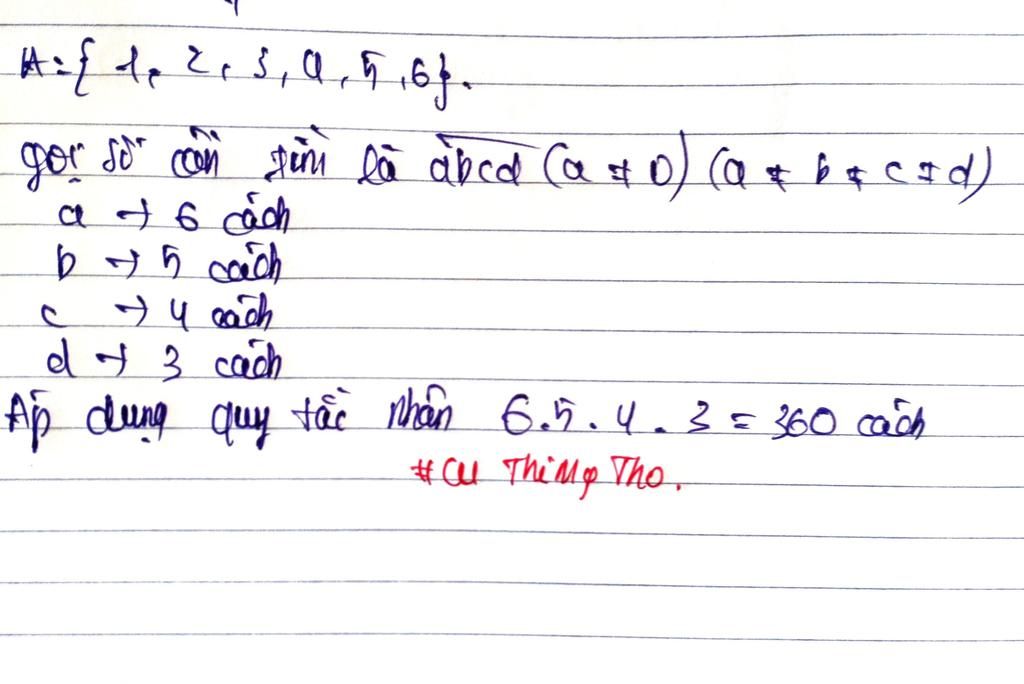 A = { 1, 2, 3, 4, 5, 6 }.
gọi số cần tìm là abcd (a ≠ 0) (a ≠ b ≠ c ≠ d)
a → 6 cách
b → 5 cách
c → 4 cách
d → 3 cách
Áp dụng quy tắc nhân 6.5.4.3 = 360 cách
#CU Thi Mp Tho.